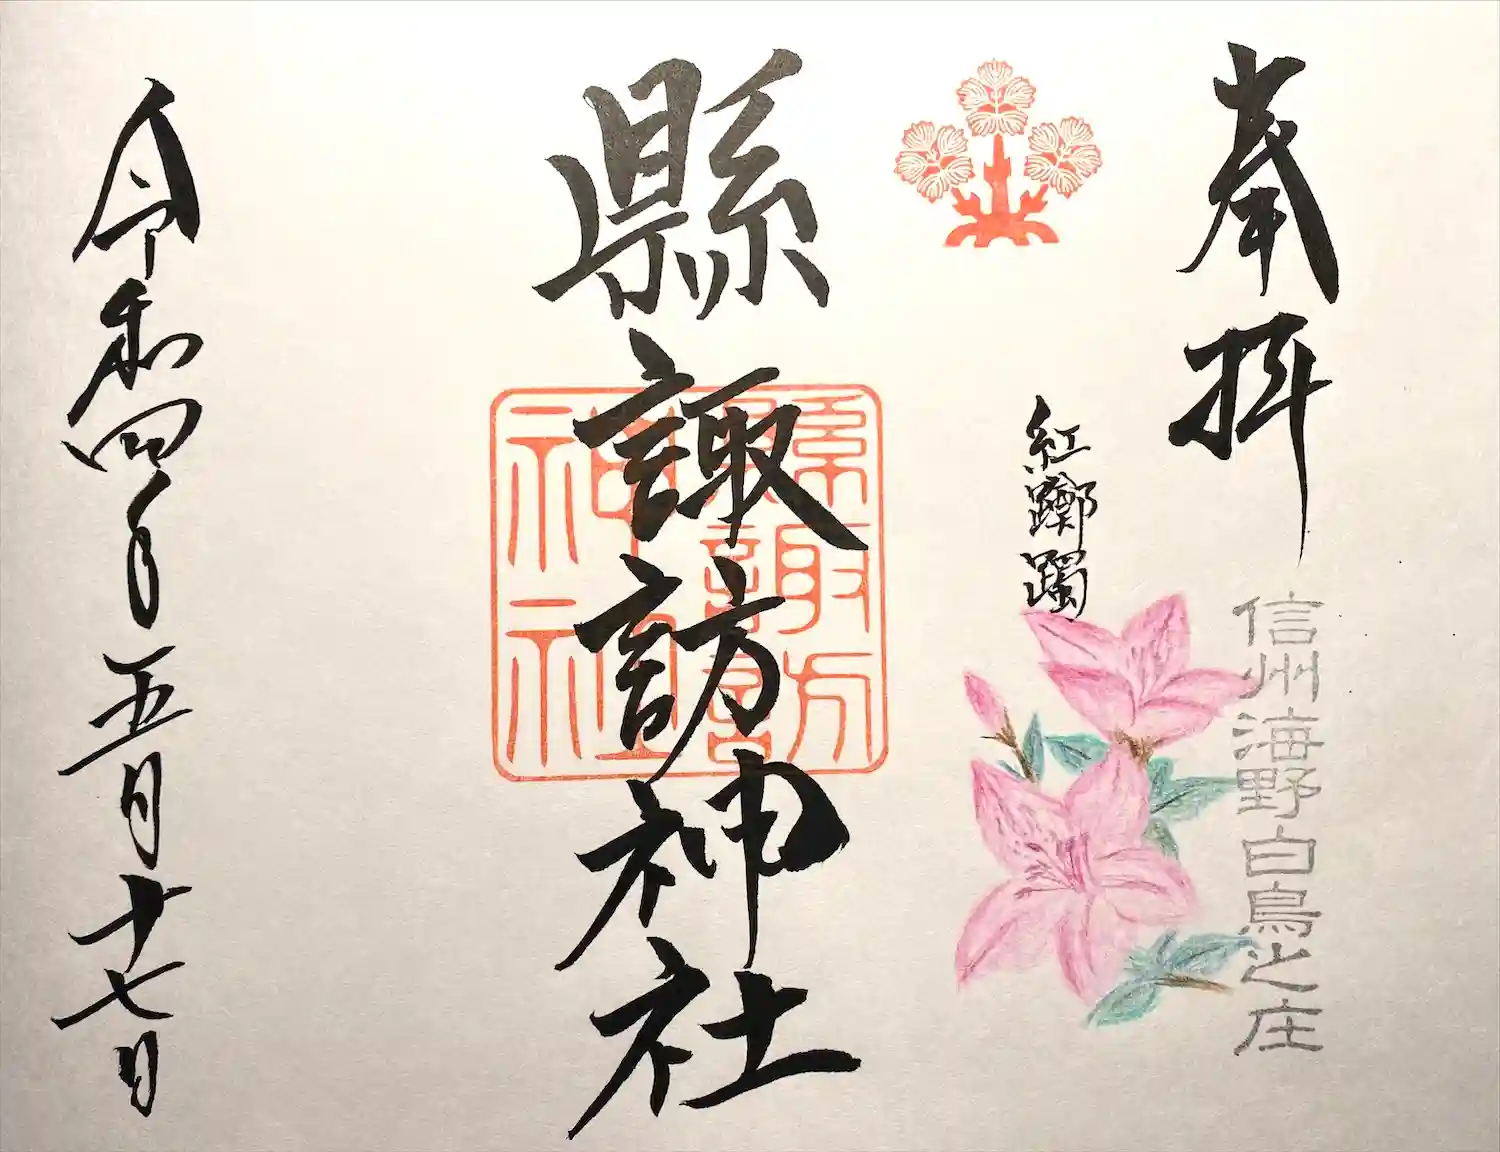 奉拝
信州海野白鳥之庄
紅躑躅
縣諏訪神社
縣諏訪宮
神社
令和四年
五月十七日